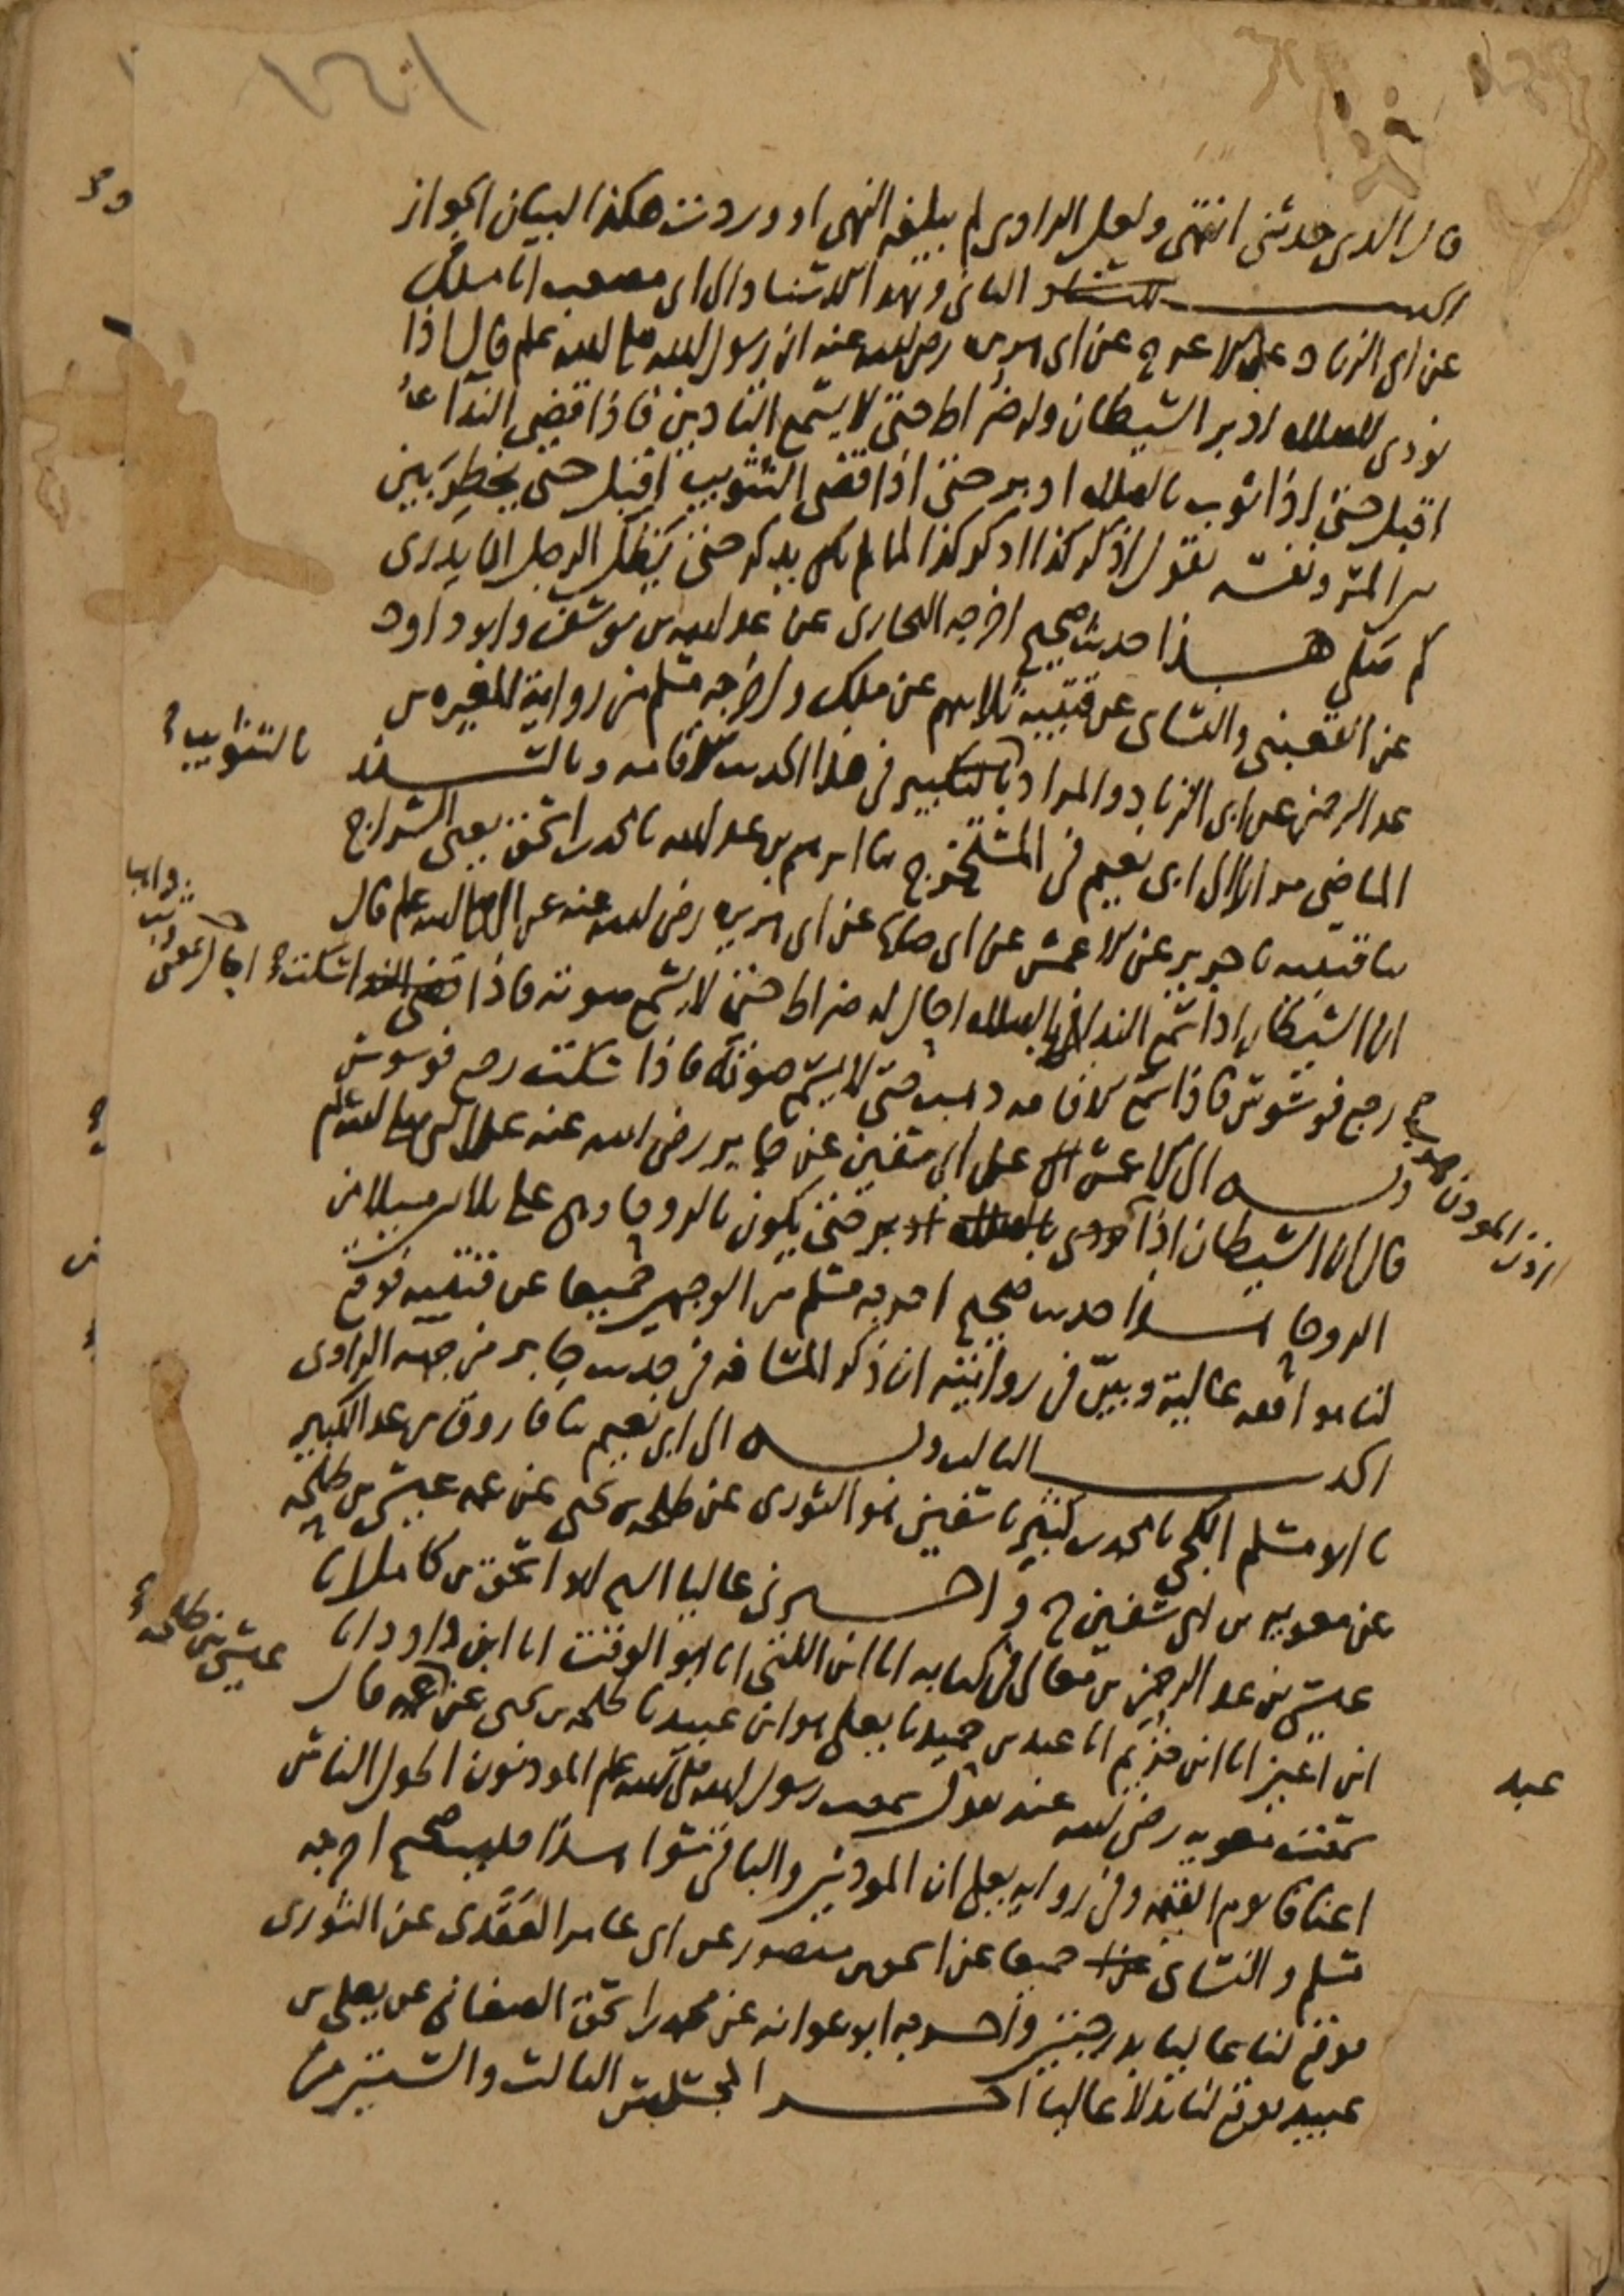 ١٤١
قال الذى حدثنى انتهى ولعل الراوى لم يبلغه النهى او وردت هكذا لبيان الجواز
الحديث الثانى وبهذا الاسناد الى ابى مصعب انا ملك
عن ابى الزناد عن الاعرج عن ابى هريره رضى الله عنه ان رسول الله صلى الله عليه وسلم قال اذا
نودى للصلاه ادبر الشيطان وله ضراط حتى لا يسمع التاذين فاذا قضى النداء
اقبل حتى اذا ثوب بالصلاه ادبر حتى اذا قضى التثويب اقبل حتى يخطر بين
المرء ونفسه يقول اذكر كذا اذكر كذا لما لم يكن يذكر حتى يظل الرجل ان يدرى
كم صلى هذا حديث صحيح اخرجه البخارى عن عبد الله بن يوسف وابو داود
عن القعنبى والنساى عن قتيبة ثلاثتهم عن ملك واخرجه مسلم من رواية المغيره بن
عبد الرحمن عن ابى الزناد والمراد بالتكبير فى هذا الحديث الاقامه وبالسند
بالتثويب
الماضى مرارا الى ابى نعيم فى المستخرج ثنا ابرهيم بن عبد الله نا محمد بن اسحق يعنى السراج
ثنا قتيبه نا جرير عن الاعمش عن ابى صالح عن ابى هريره رضى الله عنه عن النبى صلى الله عليه وسلم قال
ان الشيطان اذا سمع النداء بالصلاه احال له ضراط حتى لا يسمع صوته فاذا سكت
رجع فوسوس فاذا سمع الاقامه ذهب حتى لا يسمع صوته فاذا سكت رجع فوسوس
وبه الى الاعمش عن ابى سفين عن جابر رضى الله عنه عن النبى صلى الله عليه وسلم
اذن الموذن
قال ان الشيطان اذا نودى بالصلاه ادبر حتى يكون بالروحا وهى على ثلاثين ميلا من
الروحا هذا حديث صحيح اخرجه مسلم من الوجهين جميعا عن قتيبه فوقع
لنا موافقه عالية وبين فى روايته ان ذكر المسافه فى حديث جابر من جهة الراوى
الحديث الثالث وبه الى ابى نعيم ثنا فاروق بن عبد الكبير
نا ابو مسلم الكجى نا محمد بن كثير نا سفين هو الثورى عن طلحه بن يحيى عن عمه عيسى بن طلحه
عن معويه بن ابى سفين ح واخبرنى عاليا ابو اسحق بن كامل انا
عيسى بن عبد الرحمن بن معالى فى كتابه انا ابن اللتى انا ابو الوقت انا ابن داود انا
عيسى بن طلحه
ابن اعين انا ابن خزيم انا عبد بن حميد نا يعلى هو ابن عبيد نا طلحه بن يحيى عن عمه قال
عبد
سمعت معويه رضى الله عنه يقول سمعت رسول الله صلى الله عليه وسلم الموذنون اطول الناس
اعناقا يوم القيمه وفى روايه يعلى ان الموذنين والباقى سوا هذا حديث صحيح اخرجه
مسلم والنساى جميعا عن اسحق بن منصور عن ابى عامر العقدى عن الثورى
فوقع لنا عاليا بدرجتين واخرجه ابو عوانه عن محمد بن اسحق الصغانى عن يعلى بن
عبيد فوقع لنا بدلا عاليا اخر المجلس الثالث والستين من